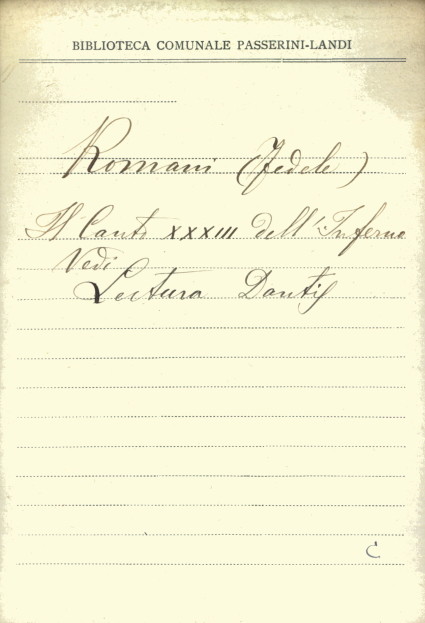 BIBLIOTECA COMUNALE PASSERINI-LANDI
Romani (Fedele)
Il Canto XXXIII dell'Inferno
Vedi
Lectura Dantis
C